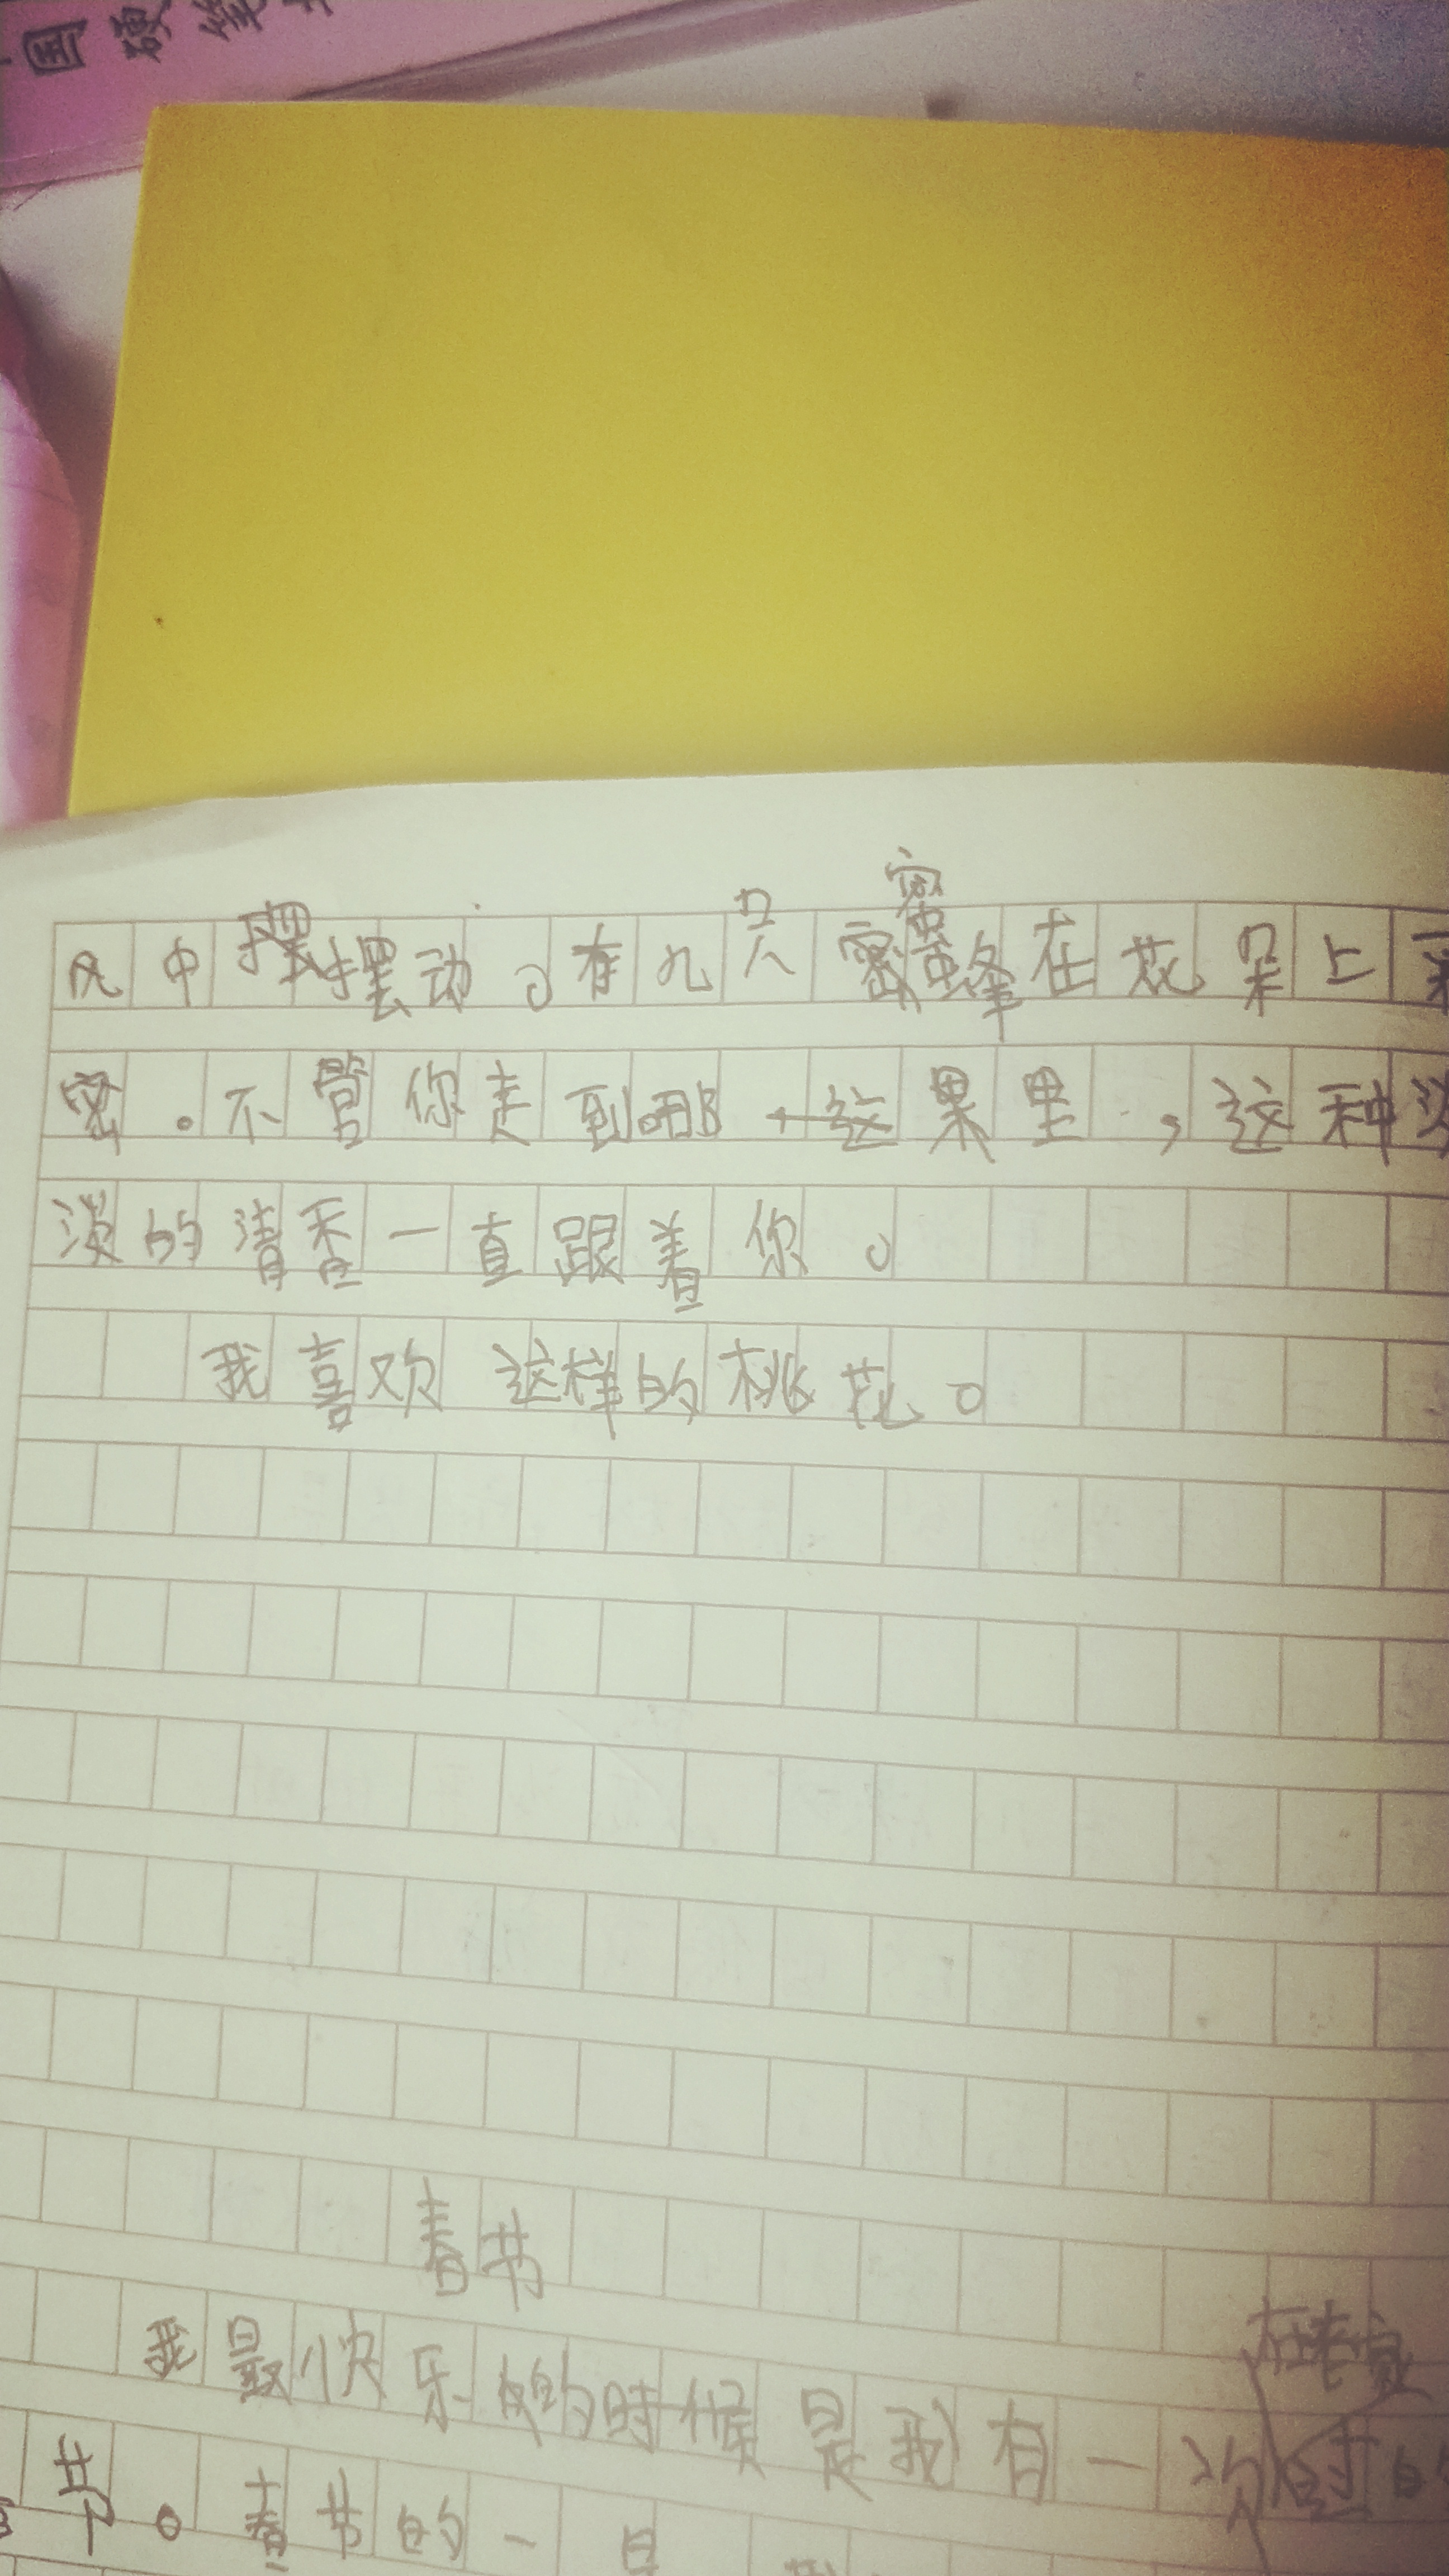 国硬笔
风中摆动。有几只蜜蜂在花朵上采
密。不管你走到哪里,这种淡
淡的清香一直跟着你。
我喜欢这样的桃花。
春节
我最快乐的时候是我有一次在老家过的
节。春节的一